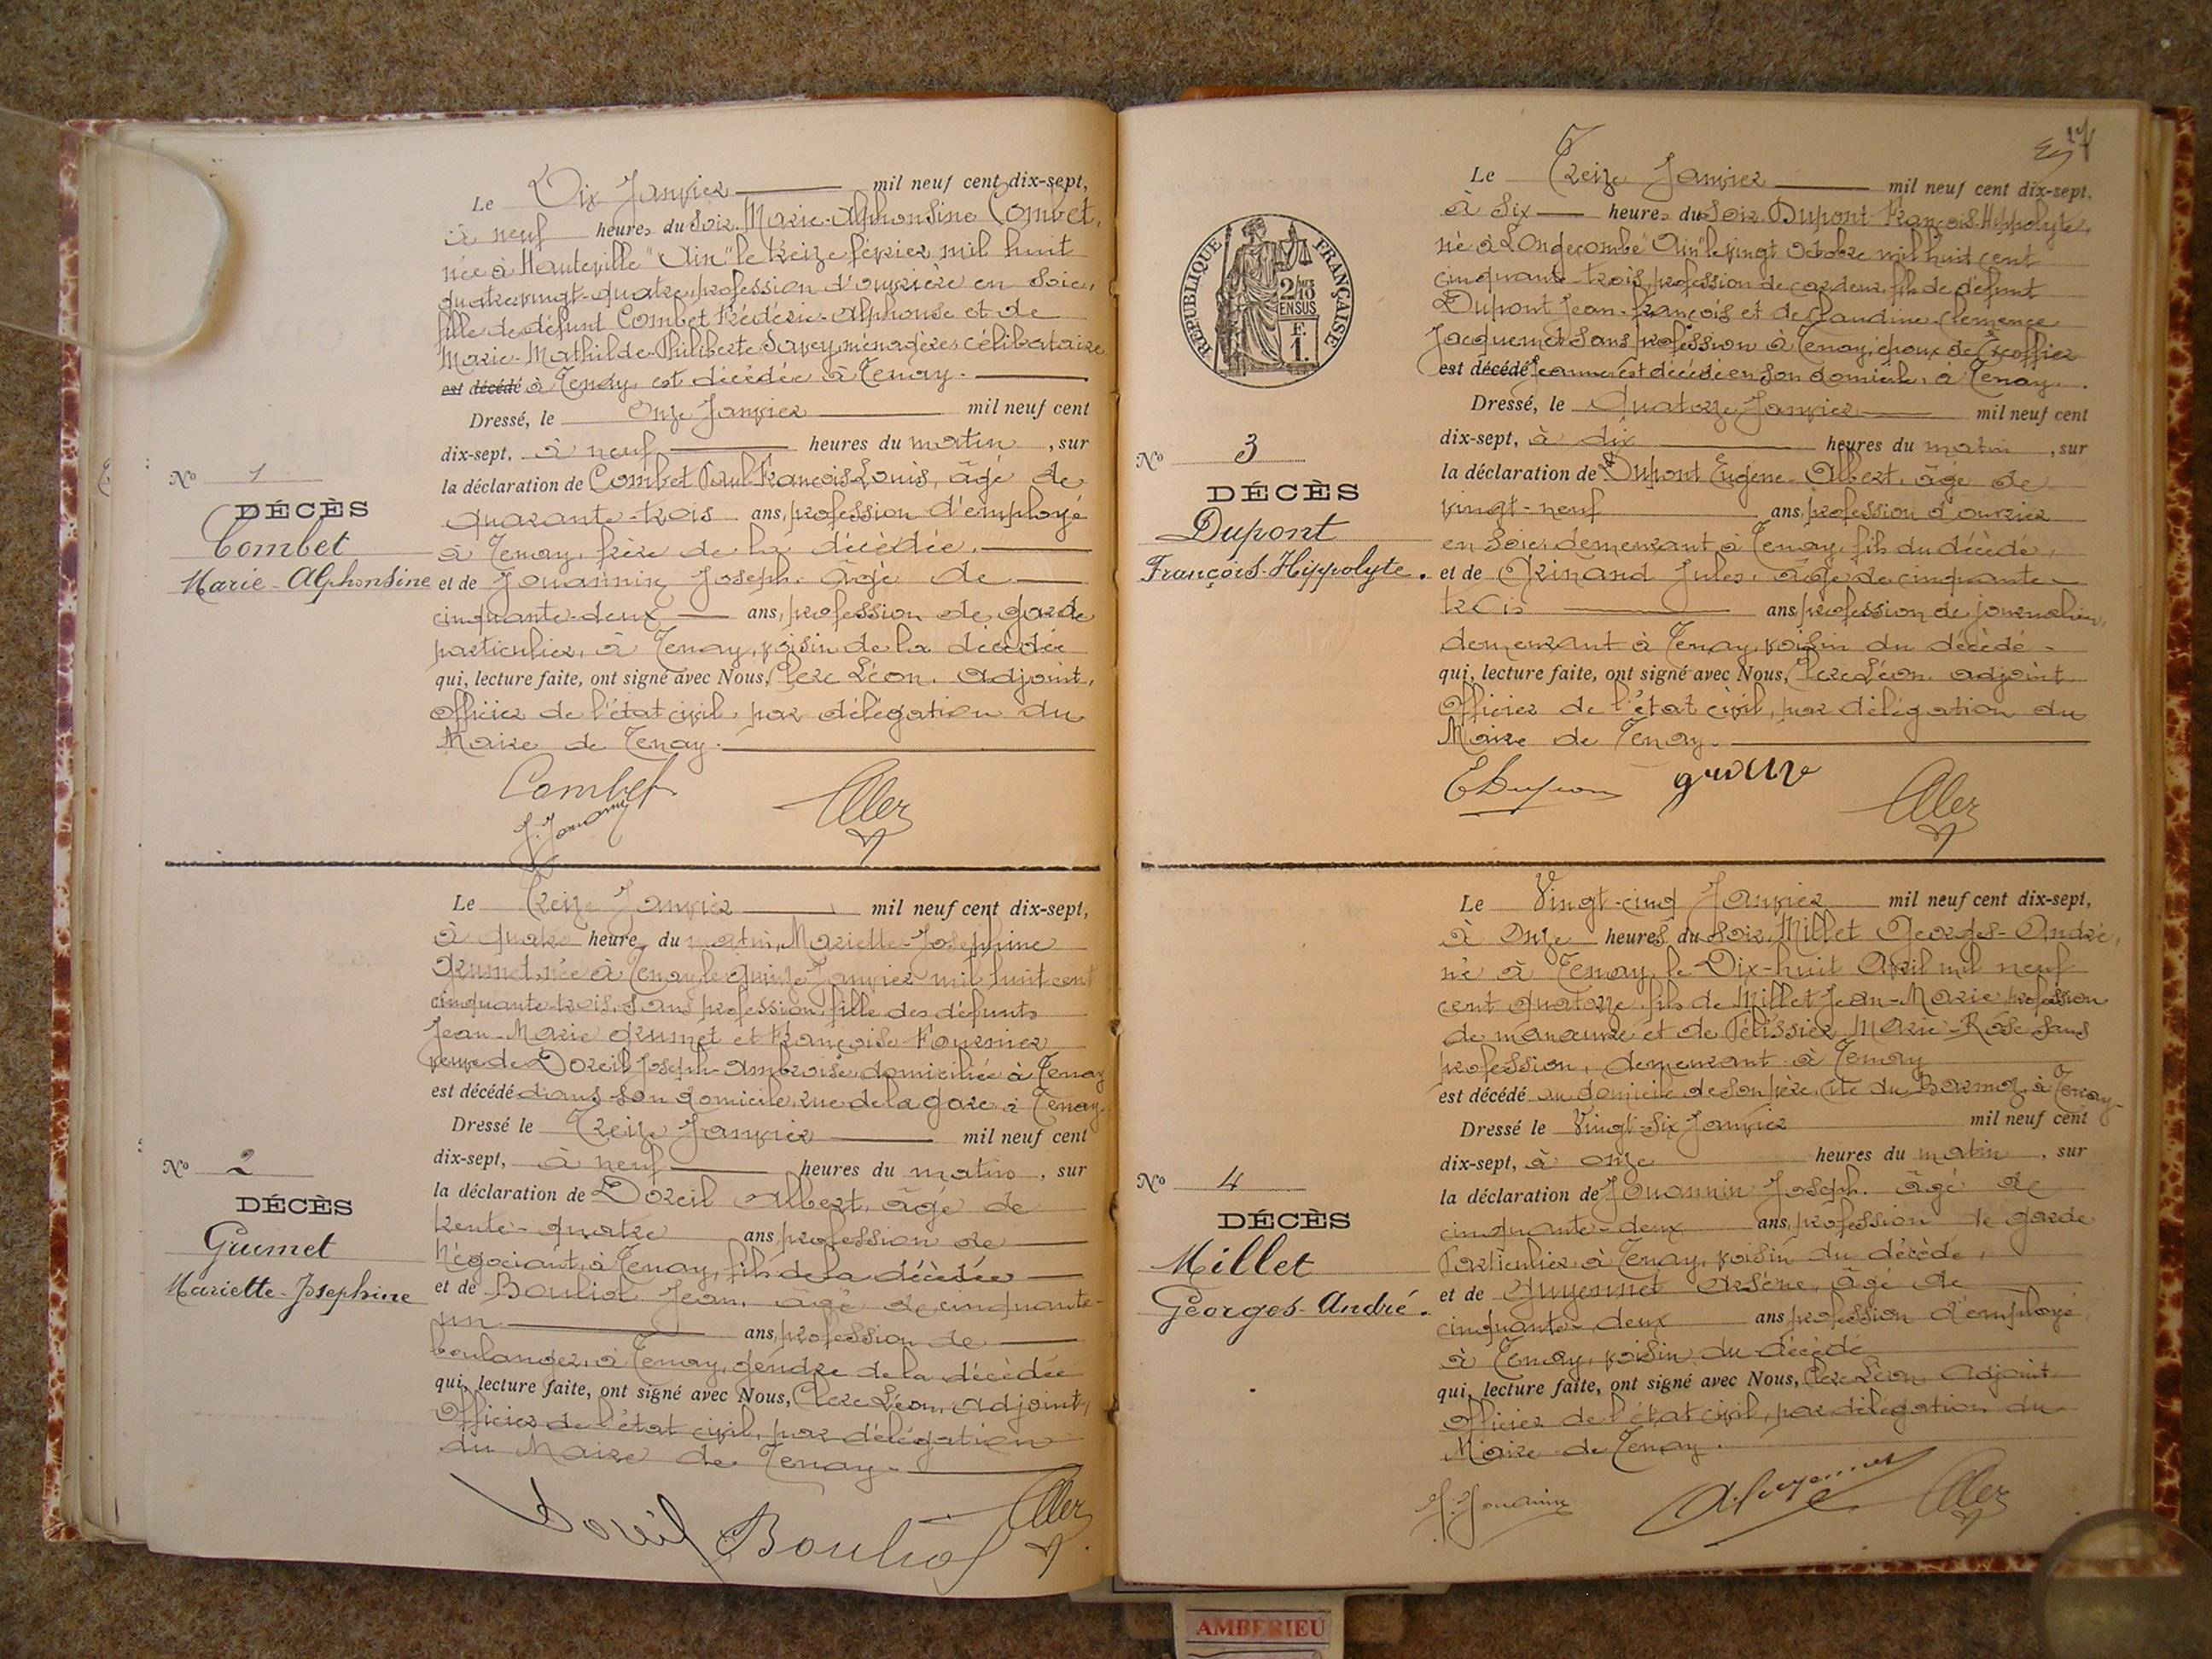 Le Dix Janvier mil neuf cent dix-sept,
à neuf heures du soir Marie-Alphonsine Combet,
née à Hauteville "Ain" le treize février mil huit
quatrevingt-quatre, profession d'ouvrière en soie,
fille de défunt Combet Frédéric-Alphonse et de
Marie-Mathilde-Philiberte Savey, ménagère, célibataire
est décédé à Tenay, est décédée à Tenay.
Dressé, le onze Janvier mil neuf cent
dix-sept, à neuf heures du matin, sur
la déclaration de Combet Paul François Louis, âgé de
quarante-trois ans, profession d'employé
à Tenay, frère de la décédée,
et de Jouannin Joseph, âgé de
cinquante-deux ans, profession de garde
particulier, à Tenay, voisin de la décédée
qui, lecture faite, ont signé avec Nous, Clerc Léon, adjoint,
officier de l'état civil, par délégation du
Maire de Tenay.
Combet
J. Jouannin
No 1
DÉCÈS
Combet
Marie-Alphonsine
Le Treize Janvier mil neuf cent dix-sept,
à quatre heures du matin, Mariette-Josephine
Grumet, née à Tenay le quinze Janvier mil huit cent
cinquante-trois, sans profession, fille des défunts
Jean-Marie Grumet et Françoise Fournier
veuve de Doreil Joseph-Ambroise, domiciliée à Tenay
est décédé dans son domicile, rue de la gare à Tenay.
Dressé le Treize Janvier mil neuf cent
dix-sept, à neuf heures du matin, sur
la déclaration de Doreil Albert, âgé de
trente-quatre ans, profession de
Négociant, à Tenay, fils de la décédée
et de Bouliol Jean, âgé de cinquante-
un ans, profession de
boulanger, à Tenay, gendre de la décédée
qui, lecture faite, ont signé avec Nous, Clerc Léon, adjoint,
Officier de l'état civil, par délégation
du Maire de Tenay.
Doreil Bouliol
No 2
DÉCÈS
Grumet
Mariette-Josephine
27
Le Treize Janvier mil neuf cent dix-sept,
à six heures du soir Dupont François-Hippolyte,
né à Longecombe "Ain" le vingt octobre mil huit cent
cinquante-trois, profession de cardeur, fils de défunt
Dupont Jean-François et de Claudine Clemence
Jacquemet sans profession à Tenay, époux de Excoffier
est décédé Jeanne, est décédé en son domicile, à Tenay.
Dressé, le Quatorze Janvier mil neuf cent
dix-sept, à dix heures du matin, sur
la déclaration de Dupont Eugène-Albert, âgé de
vingt-neuf ans, profession d'ouvrier
en soie, demeurant à Tenay, fils du décédé,
et de Grinand Jules, âgé de cinquante-
trois ans, profession de journalier,
demeurant à Tenay, voisin du décédé.
qui, lecture faite, ont signé avec Nous, Clerc Léon, adjoint
Officier de l'état civil, par délégation du
Maire de Tenay.
E Dupont
RÉPUBLIQUE FRANÇAISE
2/10 MES
EN SUS
F.
1.
No 3
DÉCÈS
Dupont
François-Hippolyte.
Le Vingt-cinq Janvier mil neuf cent dix-sept,
à onze heures du soir, Millet Georges-André,
né à Tenay, le Dix-huit Avril mil neuf
cent quatorze fils de Millet Jean-Marie profession
de manœuvre et de Pélissier Marie-Rose sans
profession, demeurant à Tenay
est décédé au domicile de son père, Cité du à Tenay.
Dressé le Vingt-six Janvier mil neuf cent
dix-sept, à onze heures du matin, sur
la déclaration de Jouannin Joseph, âgé de
cinquante-deux ans, profession de garde
Particulier à Tenay, voisin du décédé,
et de Guyennet Arsène, âgé de
cinquante-deux ans profession d'employé
à Tenay, voisin du décédé
qui, lecture faite, ont signé avec Nous, Clerc Léon adjoint,
officier de l'état civil, par délégation du
Maire de Tenay.
J. Jouannin
No 4
DÉCÈS
Millet
Georges-André.
AMBERIEU